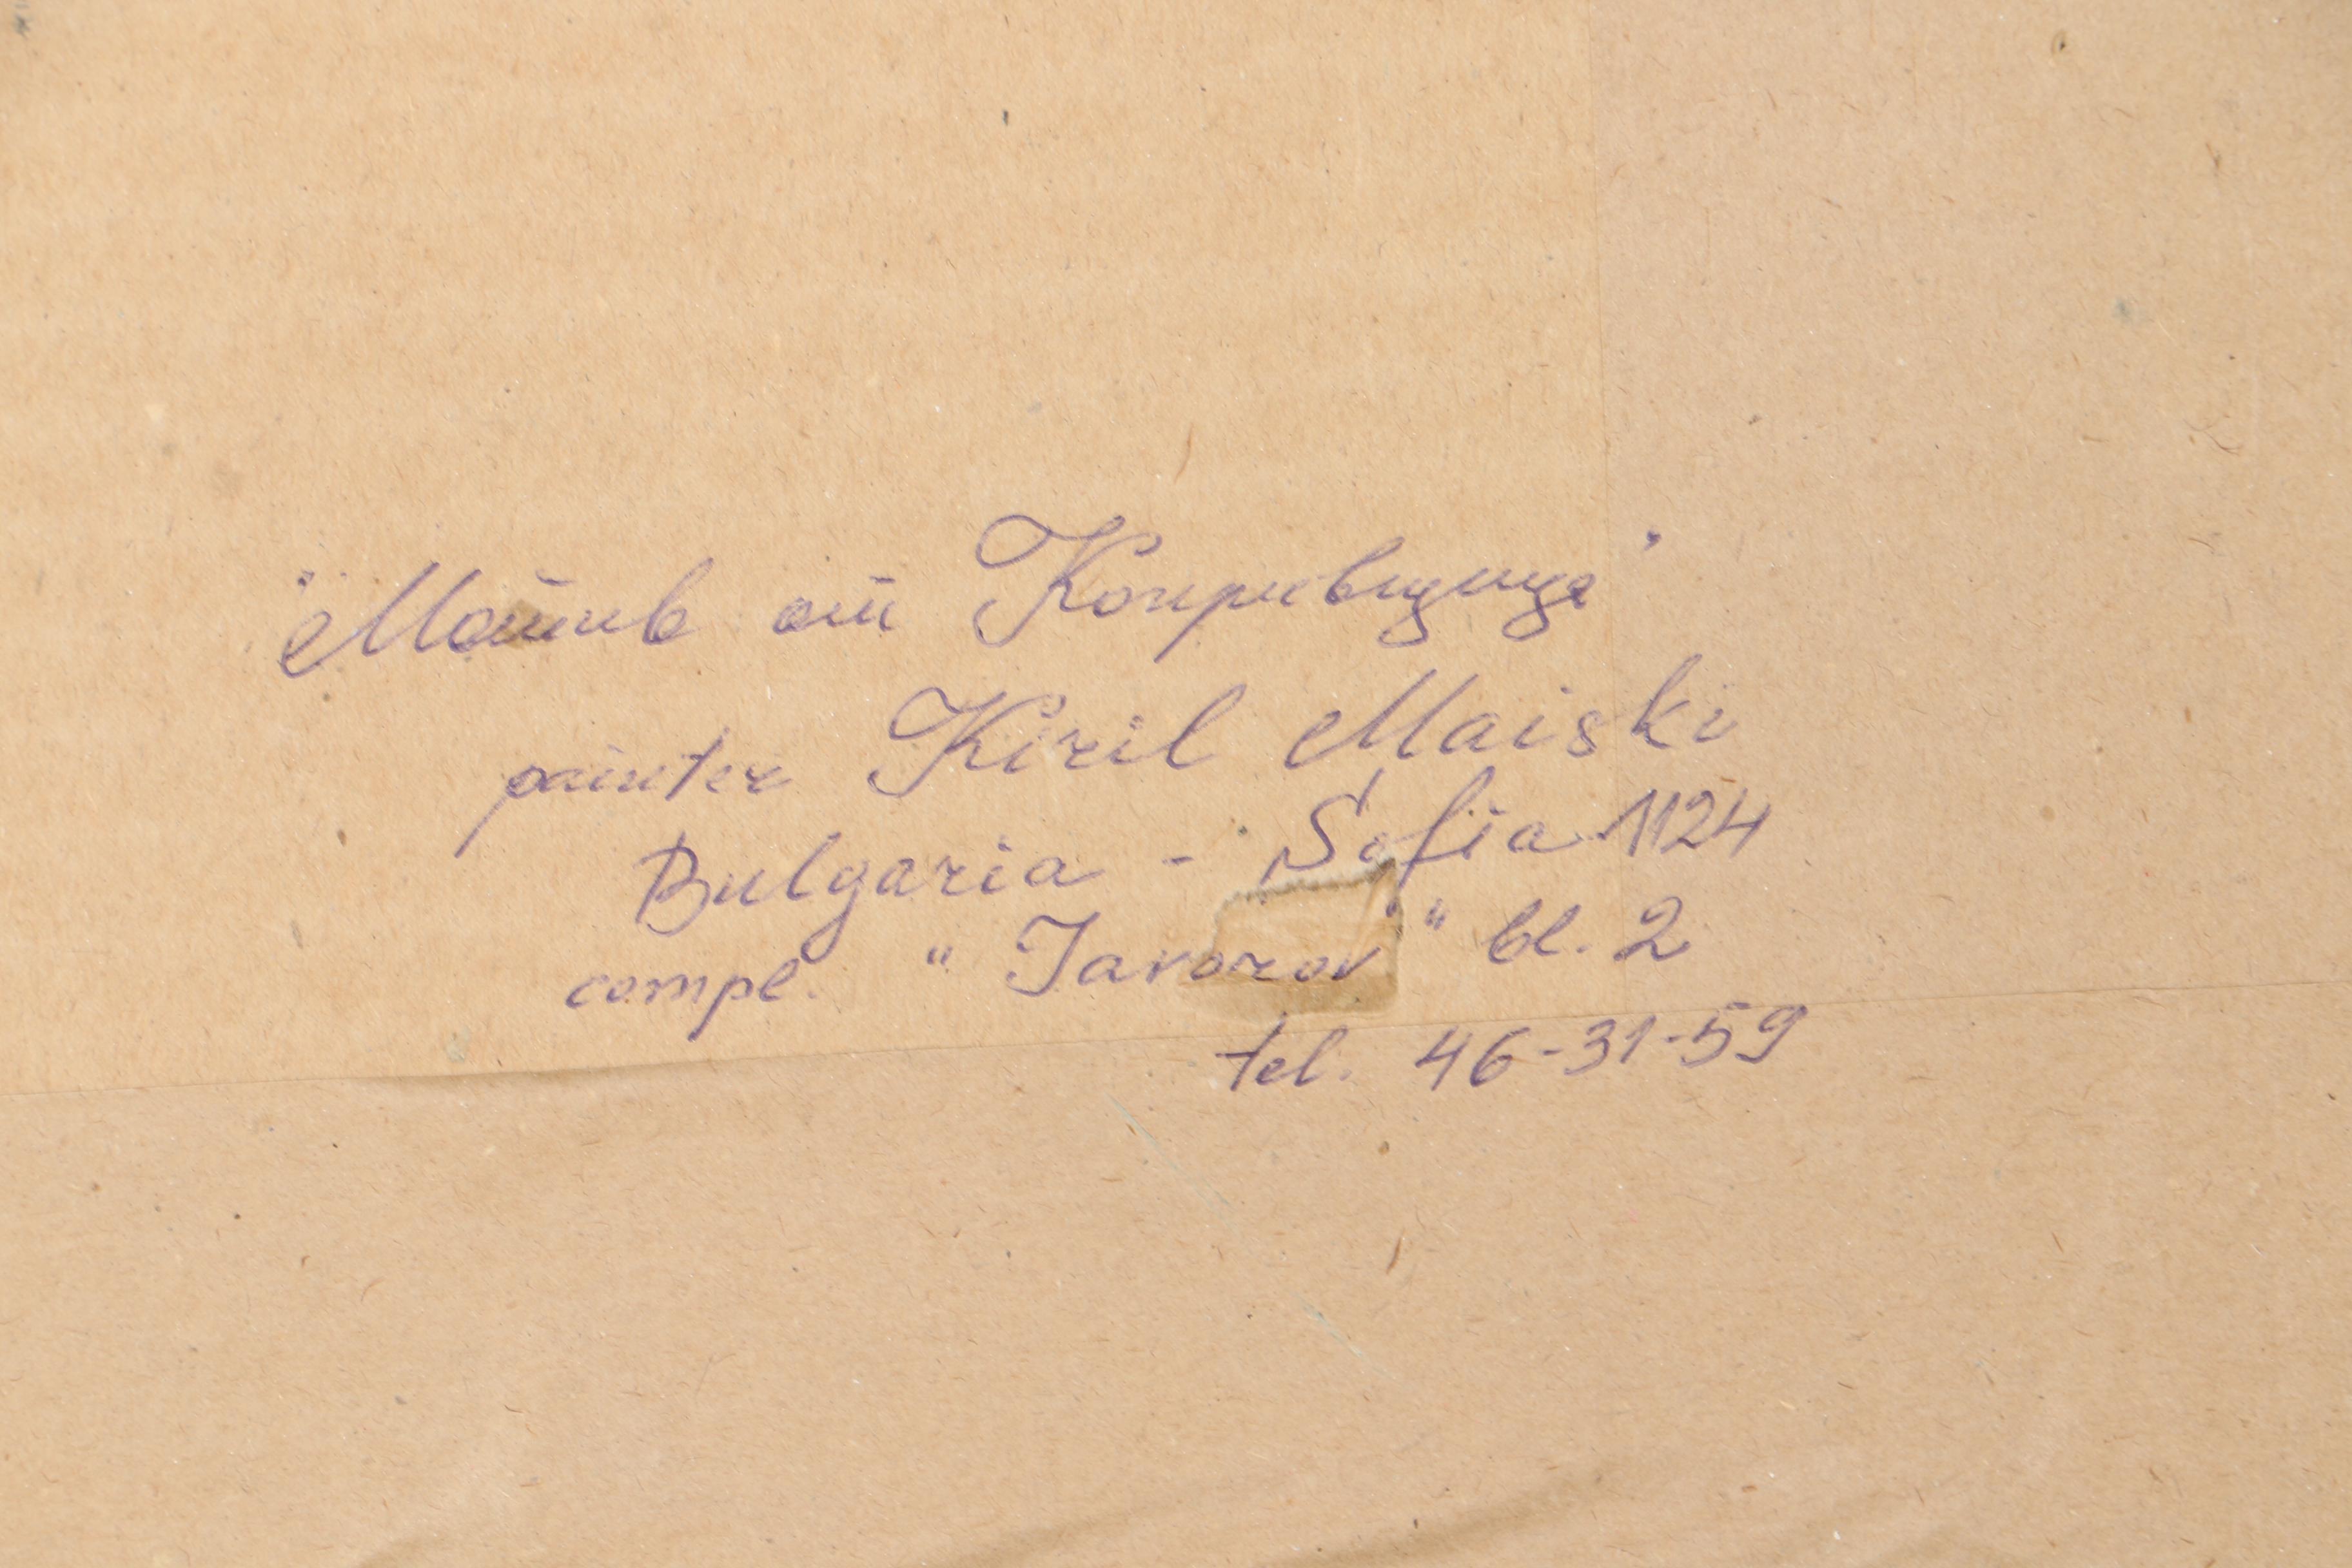 "Мотив от Копривщица"
painter Kiril Maiski
Bulgaria - Sofia 1124
compl. "Javorov" bl. 2
tel. 46-31-59